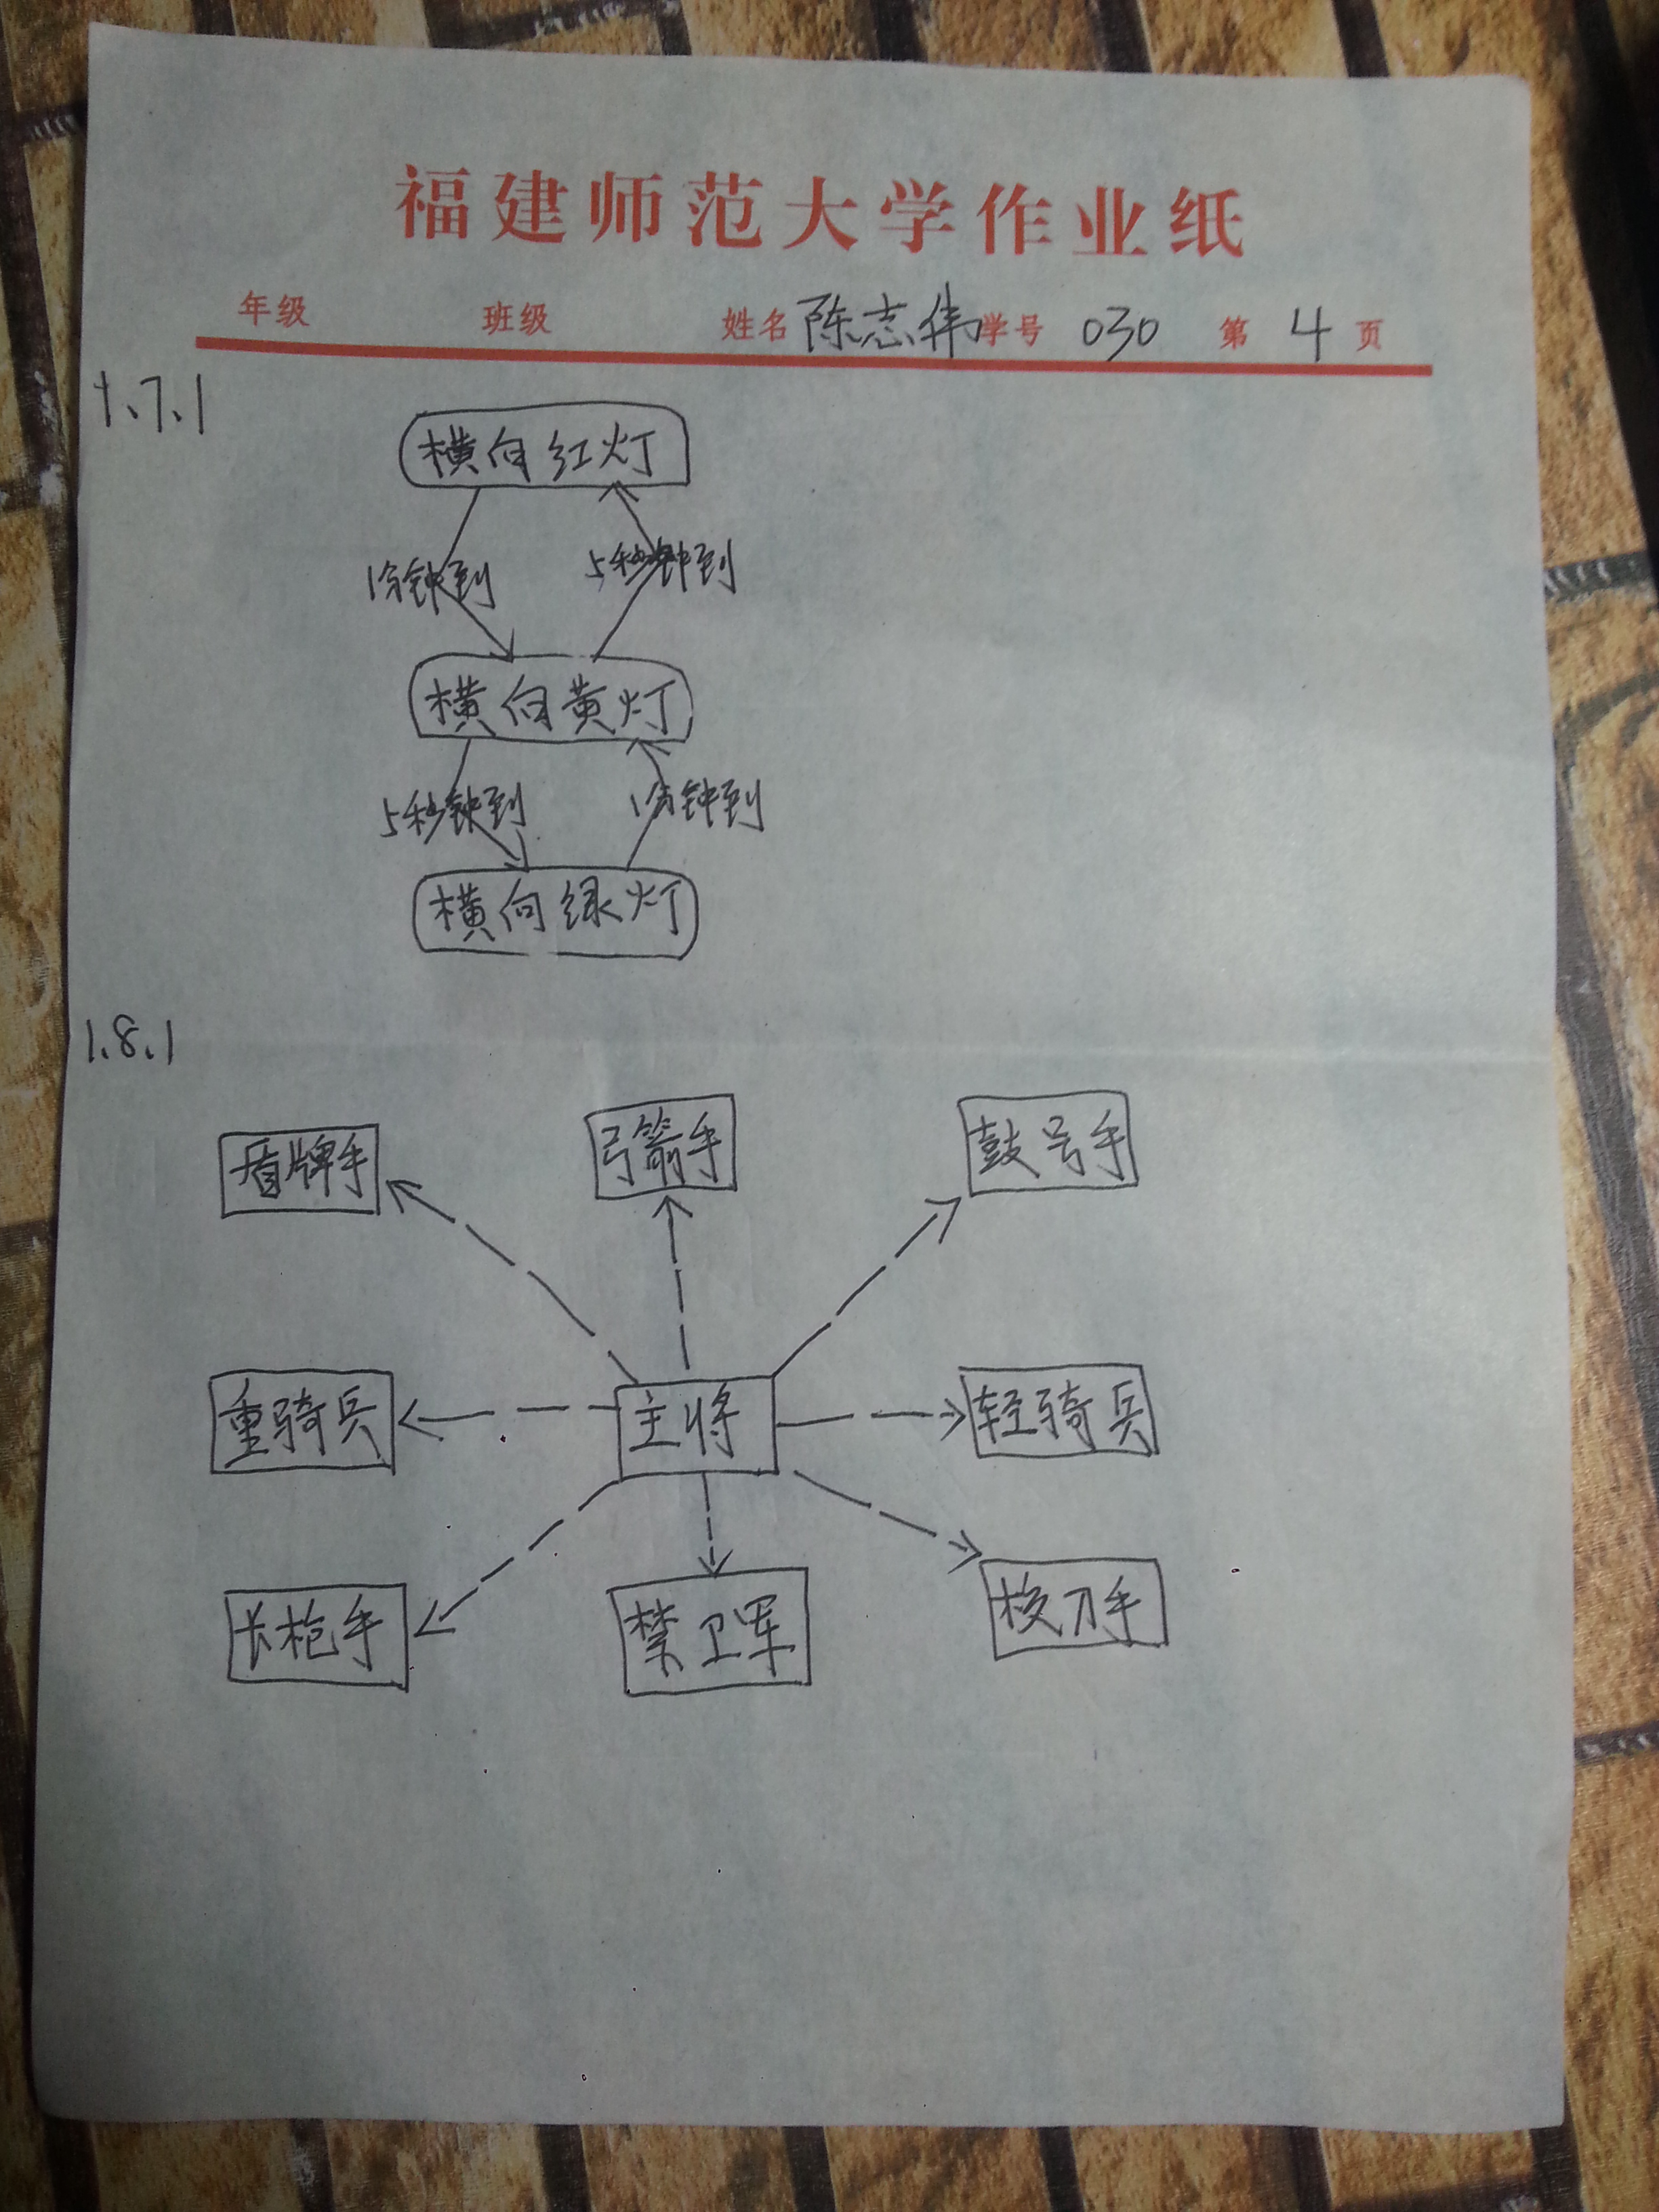 福建师范大学作业纸
年级 班级 姓名 陈志伟 学号 030 第 4 页
1.7.1
横向红灯
1分钟到 5秒钟到
横向黄灯
5秒钟到 1分钟到
横向绿灯
1.8.1
盾牌手 弓箭手 鼓号手
重骑兵 主将 轻骑兵
长枪手 禁卫军 校刀手